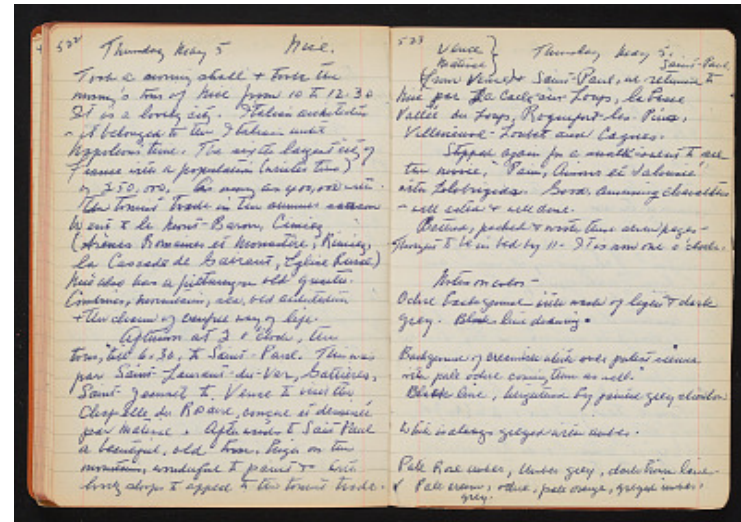 522 Thursday May 5 Nice.
Took a morning stroll + took the
morning's tour of Nice from 10 to 12:30
It is a lovely city. Italian architecture
- it belonged to the Italians until
Napoleon's time. The sixth largest city of
France with a population (winter time)
of 250,000. As many as 400,000 with
the tourist trade in the summer season
Went to le Mont-Baron, Cimiez
(Arènes Romaines et Monastère,
La Cascade de Gairaut, Eglise Russe)
Nice also has a picturesque old quarter.
Combines, mountains, sea, old architecture
+ the charm of way of life.
Afternoon at 2 o'clock, the
tour, till 6:30, to Saint-Paul. This was
par Saint-Laurent-du-Var, Gattières,
Saint-Jeannet to Vence to visit the
Chapelle du Rosaire, conçue et dessinée
par Matisse. Afterwards to Saint Paul
a beautiful, old town, on the
mountain, wonderful to paint
lovely shops to appeal to the tourist trade.
523 Vence } Thursday May 5.
Matisse } Saint-Paul
From Vence + Saint-Paul, we returned to
Nice par La Colle sur Loup, la basse
Vallée du Loup, Roquefort-les-Pins,
Villeneuve-Loubet and Cagnes.
Stopped again for a to see
the movie, "Pain, Amour et Jalousie"
with Lollobrigida. Good, amusing characters
- well acted + well done.
packed + wrote these pages -
Thought to be in bed by 11 - It is now one o'clock.
Notes on color -
Ochre background with wash of light + dark
grey. Black line drawing.
Background of creamish white over palest
with pale ochre coming thru as well.
Black line, by painted grey
White is always greyed with umber.
Pale Rose umber, Umber grey, dark brown line
+ Pale cream, ochre, pale orange, greyed umber,
grey.